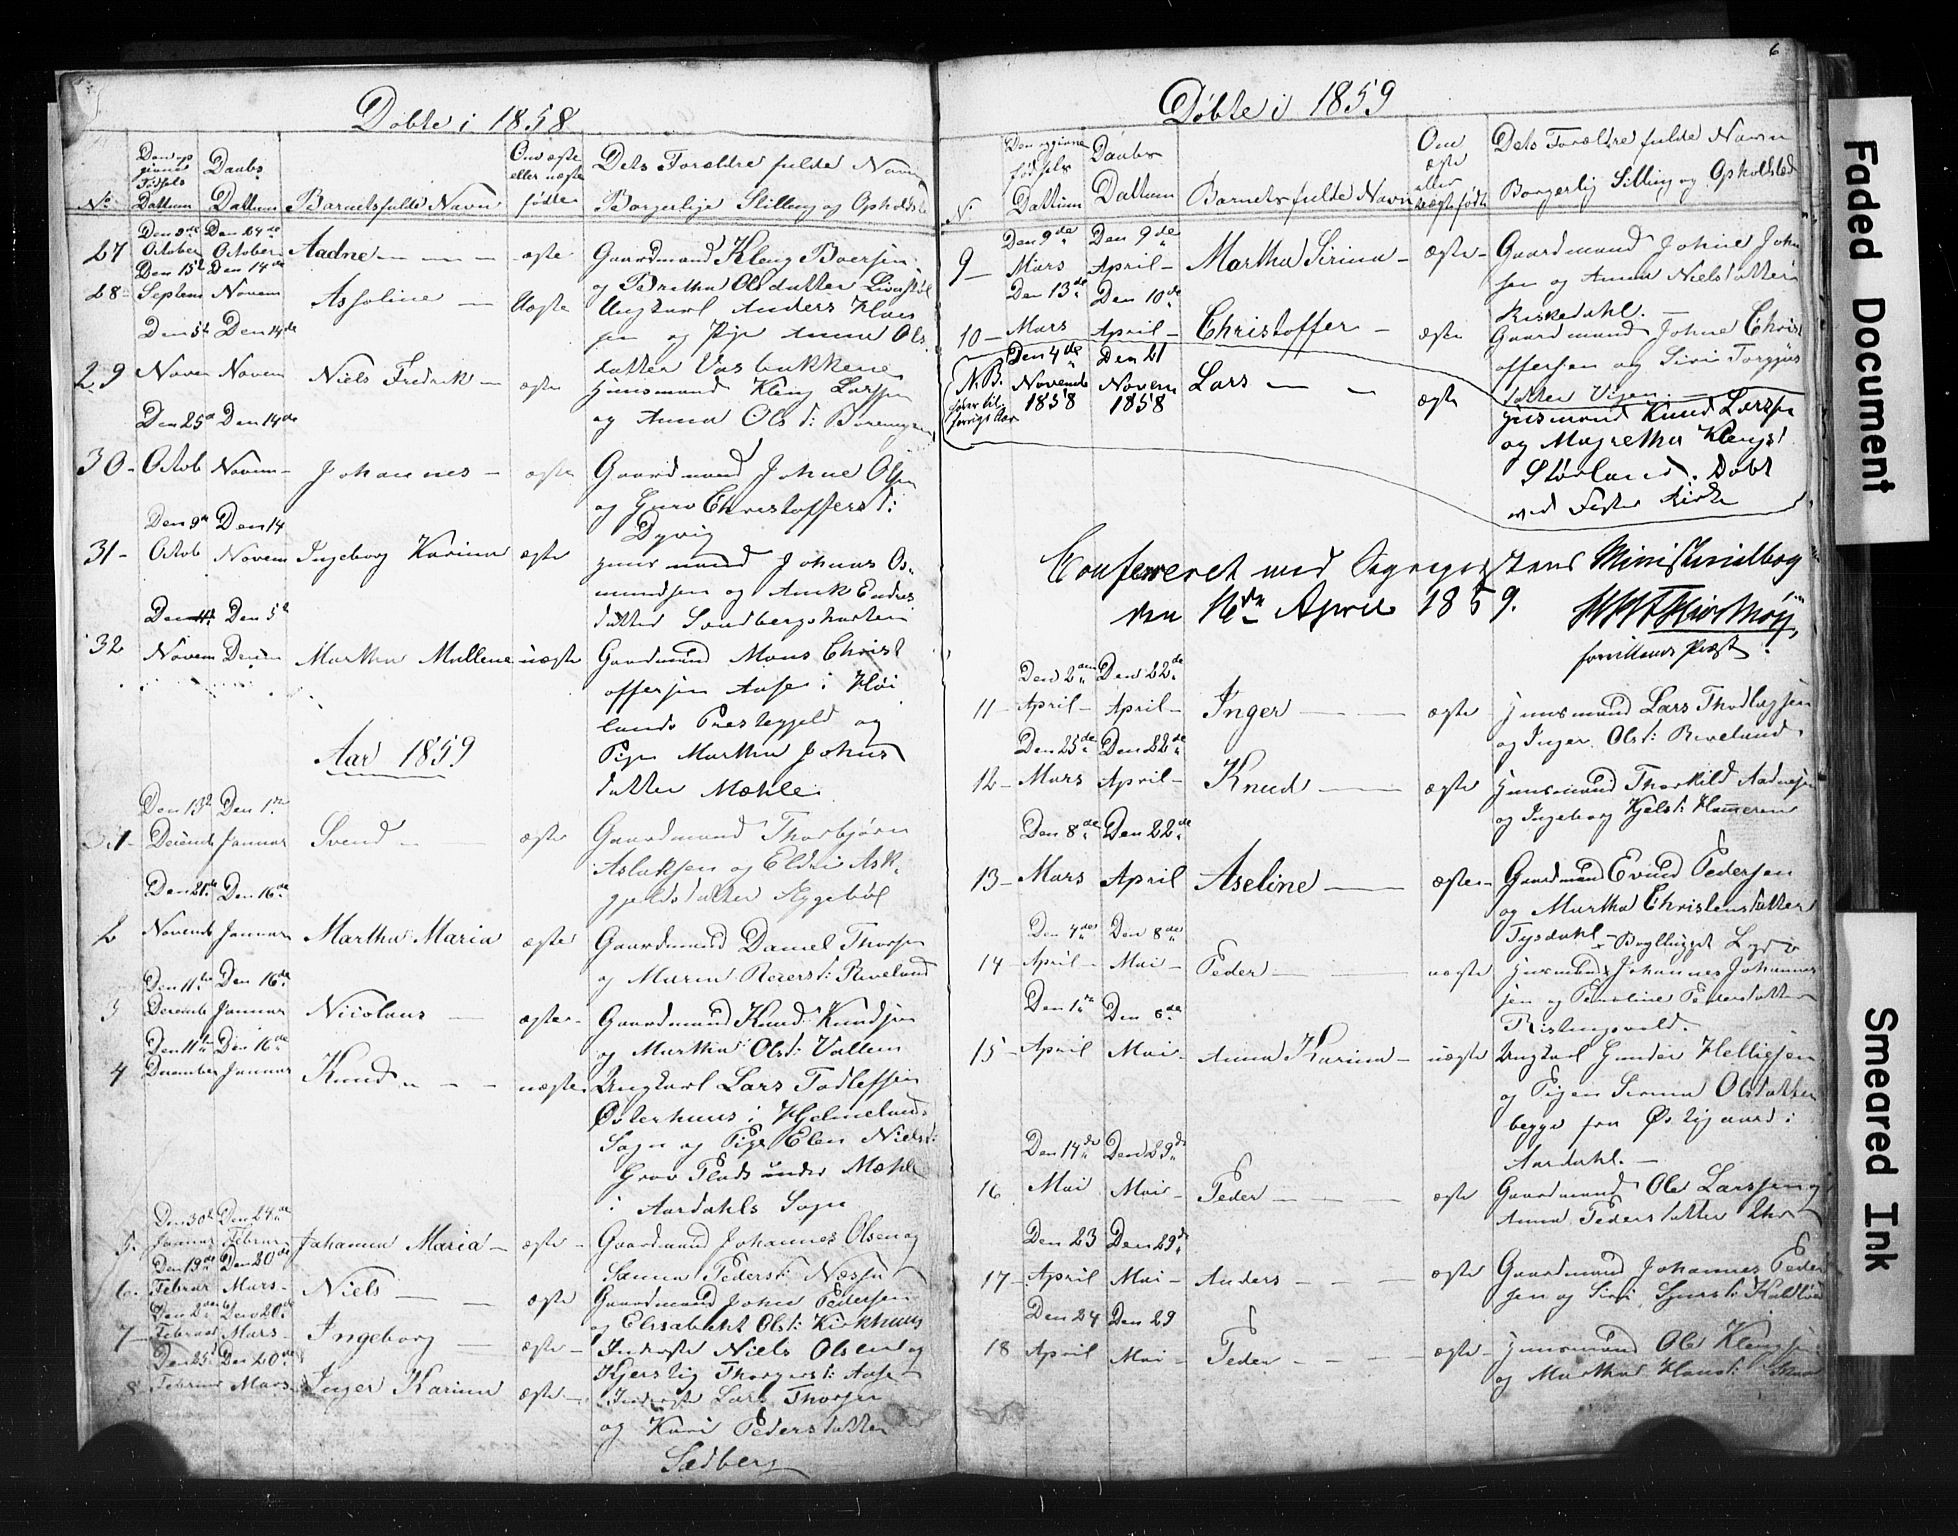 Døbte i 1858
No
Den op
givne
Fødsels
Dattum
Daabs
Dattum
Barnets fulde Navn
Om ægte
eller uægte
fødte
Dets Forældre fulde Navn
Borgerlige Stilling og Opholdsted
27 Den 9de October Den 24de October Aadne — ægte Gaardmand Kleng Boersen
og Berettha Olsdatter
28 Septem Den 14de Novem Assoline — Uægte Ungkarl Anders Klaus
sen og Pige Anna Ols
datter Vasbakkene
29 Novem Den 14de Novem Niels Fredrik — ægte Huusmand Kleng Larssen
og Anna Olsd:
30 - Den 25de Octob Den 14de Novem — Johannes — ægte Gaardmand Johne Olsen
og Guro Christoffersd:
Dyvig
31 - Octob Den 14 Novem Ingeborg Karina ægte Huusmand Johannes Os-
mundsen og Anne Endres
datter Sandbergshavten
32 Novem Den 5te Decem Martha Mallene uægte Gaardmand Mons Christ
offersen Aase i Høi
lands Prestegjeld og
Pige Martha Johns
datter Mæhle
Aar 1859
1 Den 13de Decemb Den 1ste Januar Svend — ægte Gaardmand Thorbjørn
Aslaksen og Eldri Ask-
jeldsdatter Hyggebøl
2 Den 21de Novemb Den 16de Januar Martha Maria ægte Gaardmand Daniel Thorsen
og Maren Reiersd: Riveland
3 Den 11te Decemb Den 16de Januar Nicolaus — ægte Gaardmand Knud Knudsen
og Martha Olsd: Vallem
4 Den 11te December Den 16de Januar Knud — uægte Ungkarl Lars Todlefsen
Østerhuus i Hjelmelands
Sogn og Pige Elen Nielsd:
Grov Plads under Mæhle
i Aardahls Sogn
5. Den 30te Januar Den 24de Februar Johanna Maria — ægte — Gaardmand Johannes Olsen og
Sanna Pedersd: Næssen
6. Den 19de Februar Den 20de Mars — Niels — ægte Gaardmand John Pedersen
og Elisabeht Olsd: Kirkhuus
7 Februar Den 20de Mars — Ingeborg — ægte — Inderste Niels Olsen og
Kjerstig Thorgersd: Aase
8 Den 25de Februar Den 20de Mars Inger Karina ægte — Inderste Lars Thorsen
og Kari Pedersdatter
Sedberg
6
Døbte i 1859
N
Den opgivne
fødsels
Dattum
Daabs
Dattum
Barnets fulde Navn
Om
ægte
eller
uægte født
Dets Forældre fulde Navn
Borgerlig Stilling og Opholdsted
9 — Den 9de Mars Den 9de April — Martha Sirina — ægte — Gaardmand Johne John
sen og Anna Nielsdatter
Riskedahl. —
10 — Den 13de Mars Den 10de April — Christoffer — ægte Gaardmand Johne Christ
offersen og Siri Torgjus
datter Vigen —
N.B. hører til forrige Aar Den 4de Novemb 1858 Den 21 Novem 1858 Lars — — ægte Huusmand Knud Larssen
og Magretha Klengsd
Størland. Døbt
ved Fister Kirke
Confereret med Sogneprestens Ministerialbog
den 16de April 1859.
11 — Den 2den April — Den 22de April — Inger — ægte Huusmand Lars Thodlagsen
og Inger Olsd: Riveland.
12 — Den 25de Mars Den 22de April — Knud — ægte Huusmand Thorkild Aadnesen
og Ingeborg Kjelsd: Hameren
13 — Den 8de Mars Den 22de April Aseline — ægte — Gaardmand Evind Pedersen
og Martha Christensdatter
Tysdahl —
14 — Den 4de April — Den 8de Mai — Peder — uægte Huusmand Johannes Johannes
sen og Penoline Pedersdatter
15 — Den 1ste April Den 8de Mai — Anna Karina — uægte Ungkarl Gunder Helliesen
og Pigen Serina Olsdatter
begge fra Østigaard i
Aardahl. —
16 Den 14de Mai Den 29de Mai — Peder — ægte Gaardmand Ole Larssen og
Anna Pedersdatter
17 — Den 23 April Den 29de Mai — Anders — ægte Gaardmand Johannes Peder
sen og Siri Sjursd:
18 Den 24 April Den 29 Mai — Peder — ægte — Huusmand Ole Klengsen
og Martha Hansd:
Faded Document
Smeared Ink